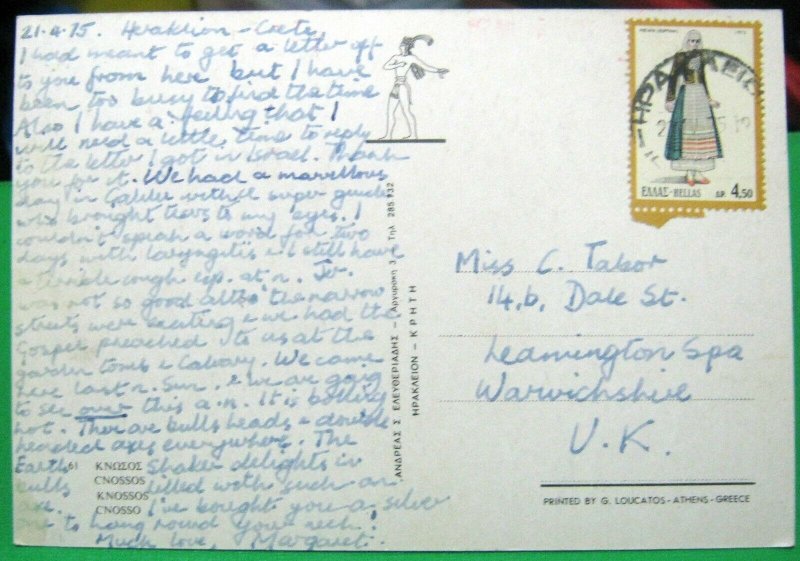 21.4.75. Heraklion - Crete
I had meant to get a letter off
to you from here but I have
been too busy to find the time
Also I have a feeling that I
will need a little time to reply
to the letter I got in Israel. Thank
you for it. We had a marvellous
day in Galilee with a super guide
who brought tears to my eyes. I
couldn't speak a word for two
days with laryngitis & I still have
a terrible cough esp. at n. Jer.
was not so good altho' the narrow
streets were exciting & we had the
Gospel preached to us at the
garden tomb & Calvary. We came
here last n. Sun. & we are going
to see over this a.n. It is boiling
hot. There are bulls heads & double
headed axes everywhere. The
Earth Shaker delights in
bulls killed with such an
axe. I've bought you a silver
one to hang round your neck!
Much love, Margaret.
61 ΚΝΩΣΟΣ
CNOSSOS
KNOSSOS
CNOSSO
ΑΝΔΡΕΑΣ Σ ΕΛΕΥΘΕΡΙΑΔΗΣ - Αργυράκη 3 - Τηλ 285 932
ΗΡΑΚΛΕΙΟΝ - ΚΡΗΤΗ
ΕΛΛΑΣ-HELLAS ΔΡ. 4,50
ΗΡΑΚΛΕΙΟ
Miss C. Tabor
14.b, Dale St.
Leamington Spa
Warwickshire
U.K.
PRINTED BY G. LOUCATOS - ATHENS - GREECE